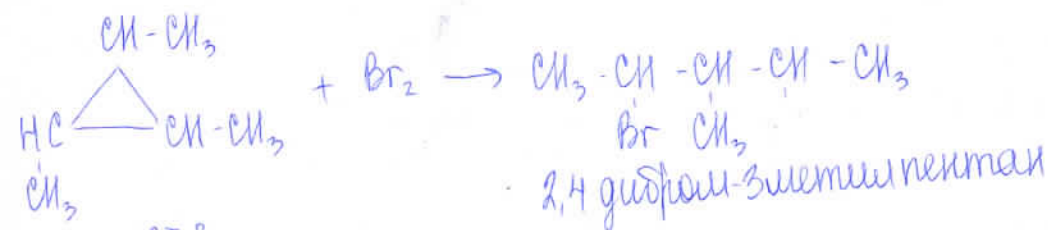 CH-CH₃
HC CH-CH₃ + Br₂ → CH₃-CH-CH-CH-CH₃
CH₃ Br CH₃
2,4 дибром-3метилпентан